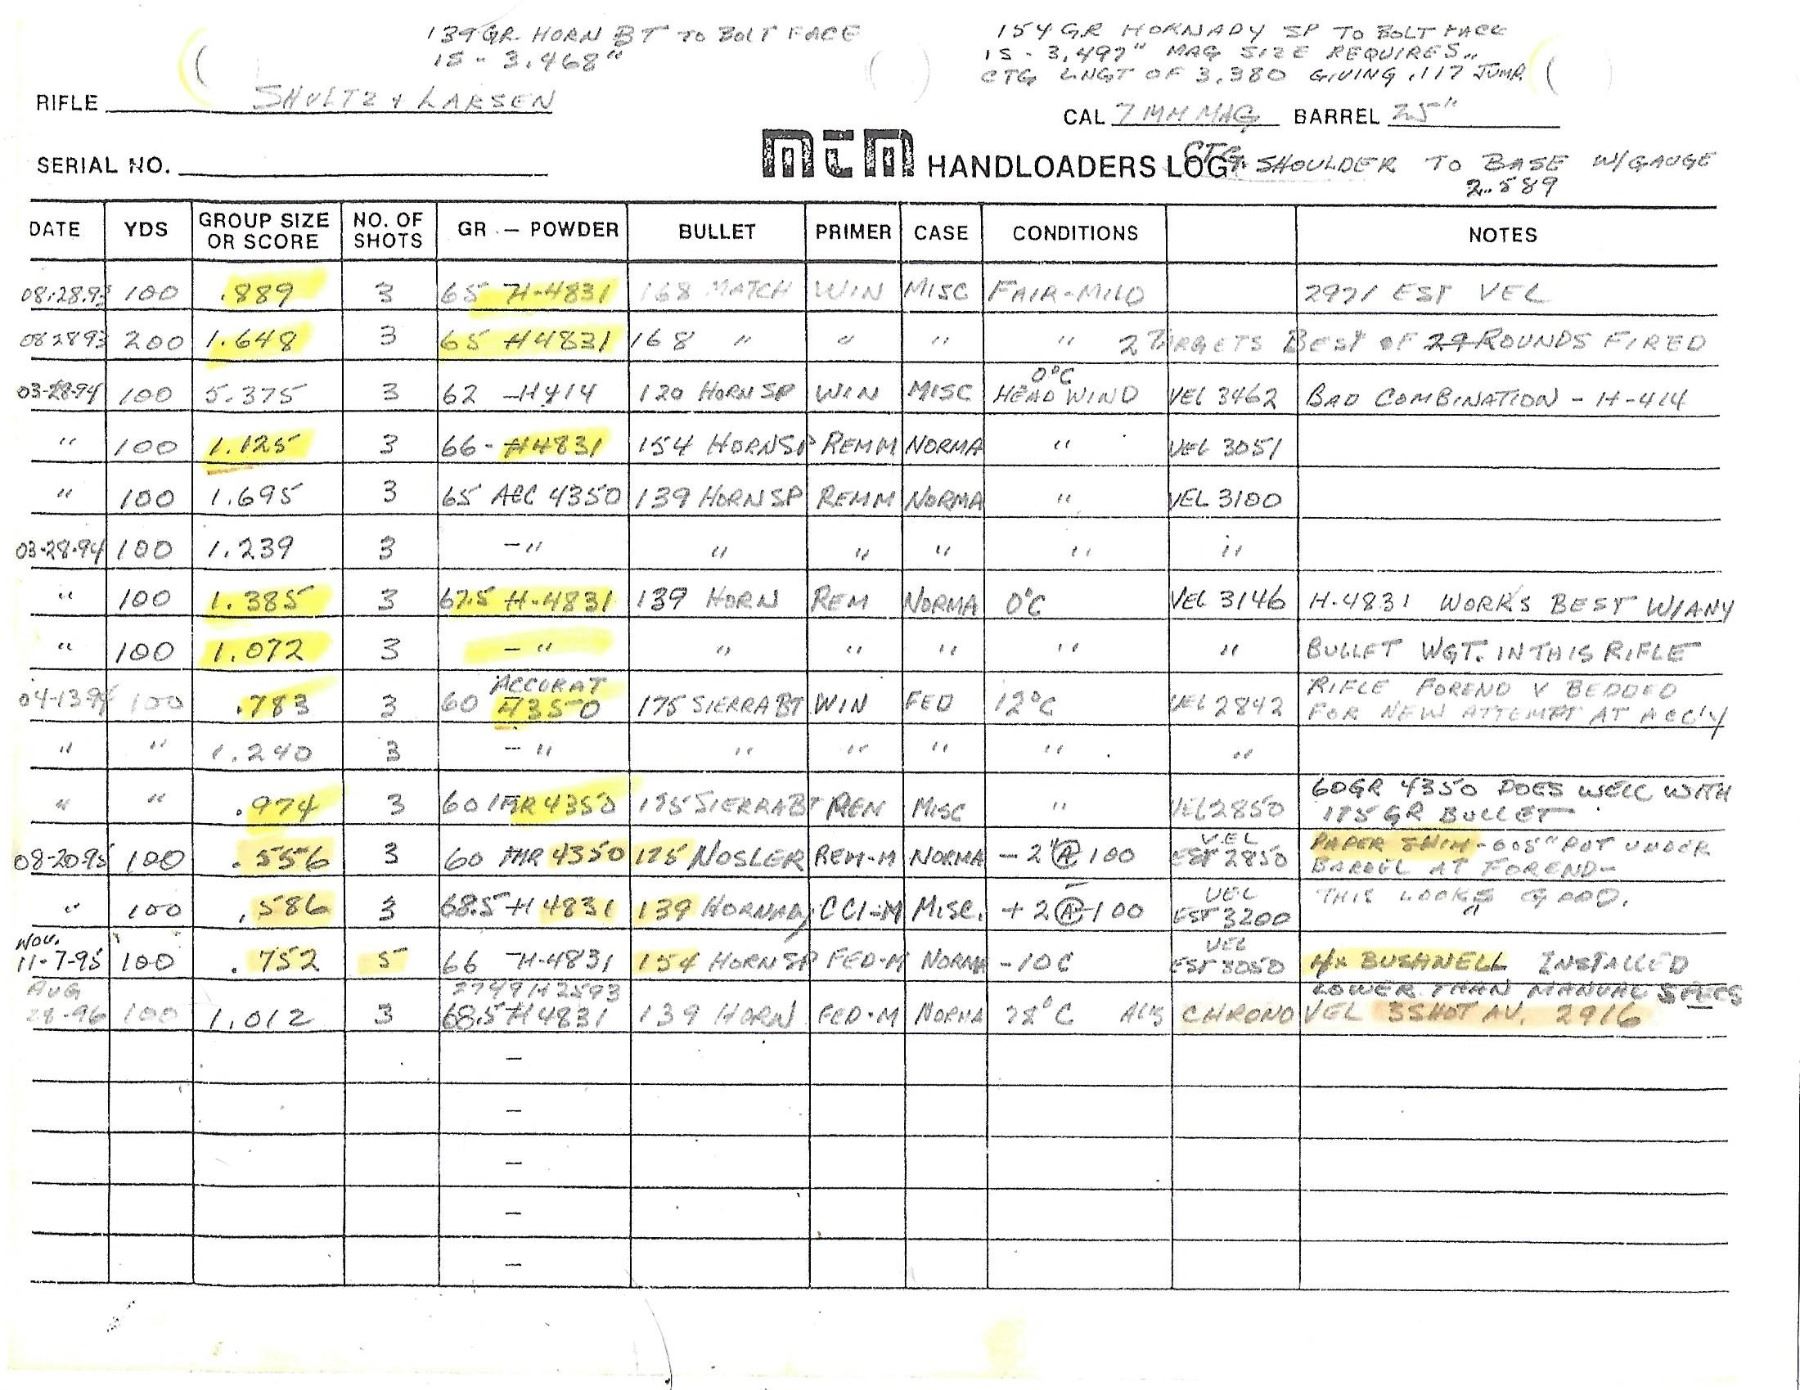 139 GR. HORN BT TO BOLT FACE
IS - 3.468"
154 GR HORNADY SP TO BOLT FACE
IS - 3.497" MAG SIZE REQUIRES
CTG LNGT OF 3.380 GIVING .117 JUMP.
RIFLE SHULTZ & LARSEN
CAL 7MM MAG BARREL 25"
SERIAL NO.
MTM HANDLOADERS LOG
CTG. SHOULDER TO BASE W/GAUGE
2.589
DATE YDS GROUP SIZE OR SCORE NO. OF SHOTS GR. — POWDER BULLET PRIMER CASE CONDITIONS NOTES
08.28.93 100 .889 3 65 H-4831 168 MATCH WIN MISC FAIR-MILD 2971 EST VEL
082893 200 1.648 3 65 H4831 168 " " " " 2 TARGETS BEST OF ROUNDS FIRED
03-28-94 100 5.375 3 62 - H414 120 HORN SP WIN MISC 0°C HEAD WIND VEL 3462 BAD COMBINATION - H-414
" 100 1.125 3 66 - H4831 154 HORNSP REMM NORMA " VEL 3051
" 100 1.695 3 65 ACC 4350 139 HORNSP REMM NORMA " VEL 3100
03-28-94 100 1.239 3 - " " " " " "
" 100 1.385 3 67.5 H-4831 139 HORN REM NORMA 0°C VEL 3146 H-4831 WORKS BEST W/ANY
" 100 1.072 3 - " " " " " " BULLET WGT. IN THIS RIFLE
04-13-94 100 .783 3 60 ACCURAT 4350 175 SIERRA BT WIN FED 12°C VEL 2842 RIFLE FOREND V BEDDED FOR NEW ATTEMPT AT ACC'Y
" " 1.240 3 - " " " " " "
" " .974 3 60 4350 175 SIERRA BT REM MISC " VEL 2850 60GR 4350 DOES WELL WITH 175 GR BULLET
08-20-95 100 .556 3 60 IMR 4350 175 NOSLER REM-M NORMA - 2" @ 100 VEL EST 2850 PAPER SHIM - .005" PUT UNDER BARREL AT FOREND -
" 100 .586 3 68.5 H 4831 139 HORNADY CCI-M MISC. + 2 @ 100 VEL EST 3200 THIS LOOKS GOOD.
NOV. 11-7-95 100 .752 5 66 H-4831 154 HORNSP FED-M NORMA -10C VEL EST 3050 BUSHNELL INSTALLED
AUG 28-96 100 1.012 3 68.5 H4831 139 HORN FED-M NORMA 28°C CHRONO VEL 3 SHOT AV. 2916 LOWER THAN MANUAL SPECS